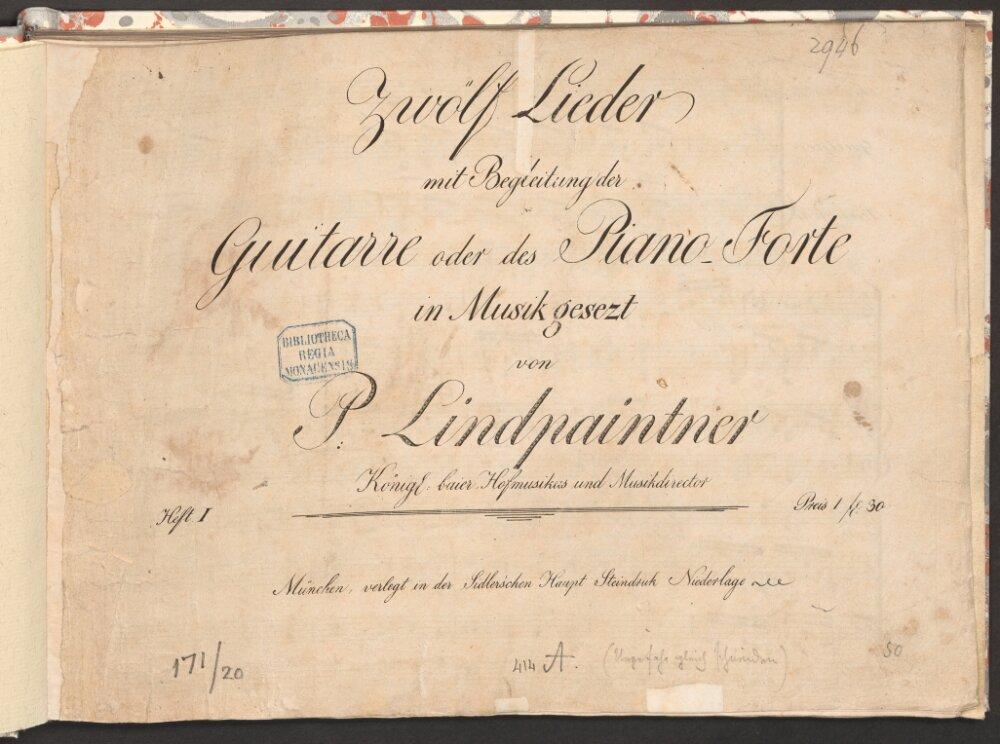 2946
Zwölf Lieder
mit Begleitung der
Guitarre oder des Piano-Forte
in Musik gesezt
von
BIBLIOTHECA
REGIA
MONACENSIS
P. Lindpaintner
Königl: baier. Hofmusikus und Musikdirector
Heft I
Preis 1 fl 30
München, verlegt in der Sidlerschen Haupt Steindruk Niederlage
171/20
414 A.
50